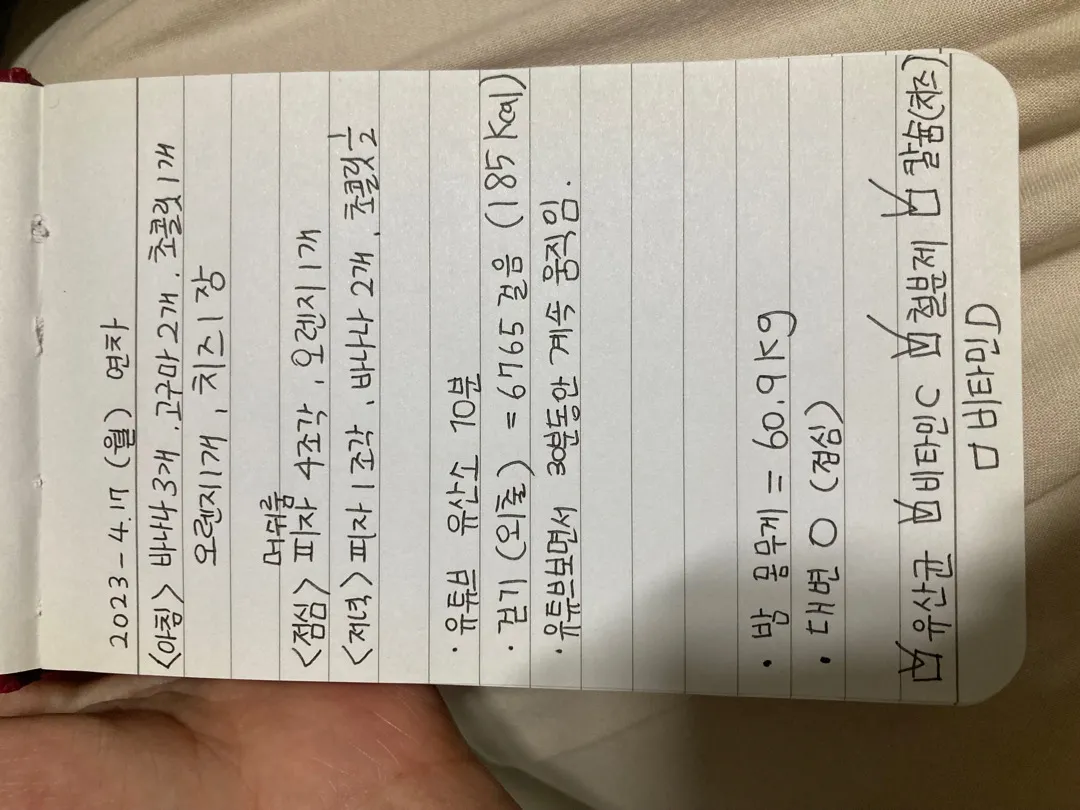 2023-4.17 (월) 연차
<아침> 바나나3개, 고구마 2개, 초콜릿 1개
오렌지1개, 치즈 1장
머쉬룸
<점심> 피자 4조각, 오렌지 1개
<저녁> 피자 1조각, 바나나 2개, 초콜릿 1/2
· 유튜브 유산소 10분
· 걷기 (외출) = 6765 걸음 (185 Kcal)
· 유튜브보면서 30분동안 계속 움직임.
· 밤 몸무게 = 60.9 kg
· 대변 O (점심)
☑ 유산균 ☑ 비타민C ☑ 철분제 ☑ 칼슘(치즈)
☐ 비타민D